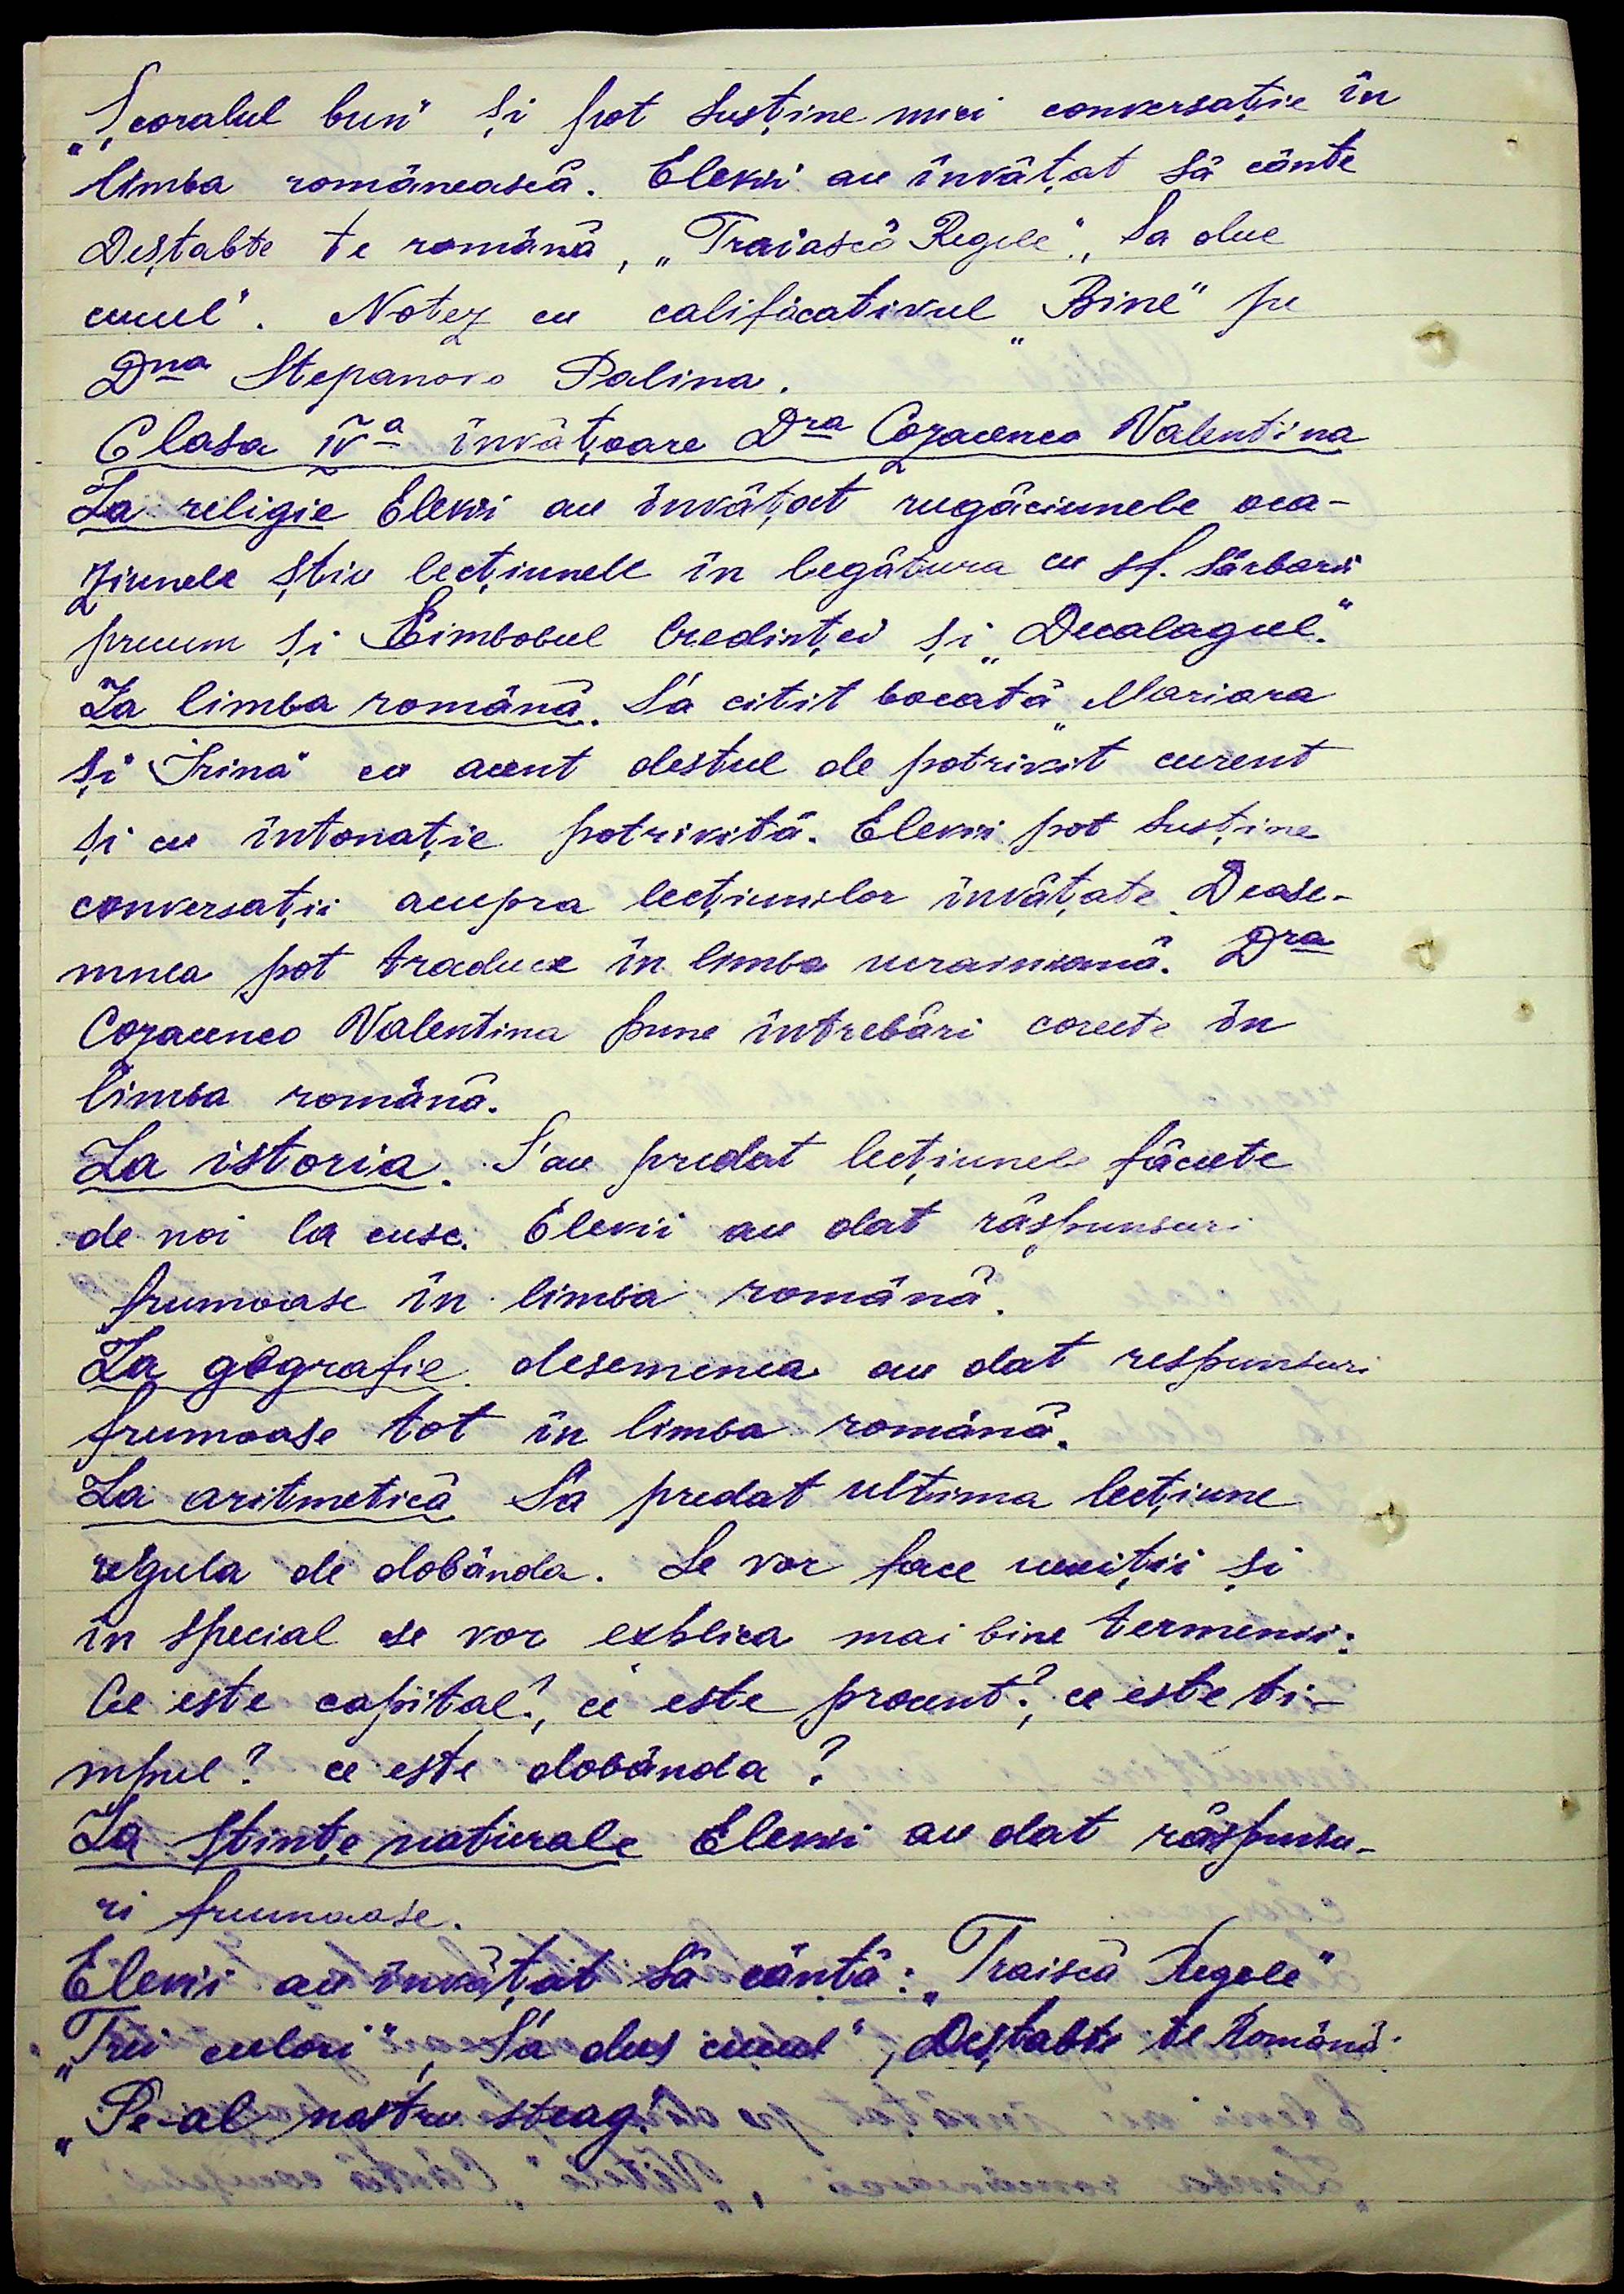 „Școralul bun" și pot susține mici conversație în
limba românească. Elevii au învățat să cânte
Deștabte te română, „Traiască Regele", Sa due
cucul". Notez cu calificativul „Bine" pe
Dna Stepanova Palina.
Clasa IVa învățoare Dra Cozacenco Valentina
La religie Elevii au învățat rugăciunele oca-
ziunele știu lecțiunele în legătura cu sf. sărbarii
precum și Simbolul Credinței și „Decalagul."
La limba română. S'a citit bucată „Marioara
și Irina" cu acent destul de potrivit curent
și cu întonație potrivită. Elevii pot susține
conversații acupra lecțiunilor învățate. Dease-
mnea pot traduce în limba ucrainiană. Dra
Cozacenco Valentina pune întrebări corecte în
limba română.
La istoria. S'au predat lecțiunele făcute
de noi la cusc. Elevii au dat răspunsuri
frumoase în limba română.
La geografie desemenea au dat respunsuri
frumoase tot în limba română.
La aritmetică S'a predat ultima lecțiune
regula de dobânda. Se vor face repetiții și
în special se vor exblica mai bine termenii:
Ce este capital?, ce este procent?, ce este ti-
mpul? ce este dobânda?
La științe naturale Elevii au dat răspunsu-
ri frumoase.
Elevii au învățat să cântă: „Traiscă Regele"
„Trei culori", S'a dus cucul", Deștabte te Română
„Pe-al nostru steag."